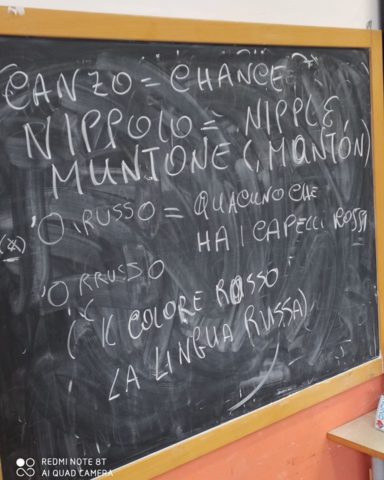 CANZO = CHANCE
NIPPOLO = NIPPLE
MUNTONE (, MONTÓN)
'O RUSSO = QUACUNO CHE
HA I CAPELLI ROSSI
(*)
'O RRUSSO
(IL COLORE ROSSO
LA LINGUA RUSSA)
REDMI NOTE 8T
AI QUAD CAMERA